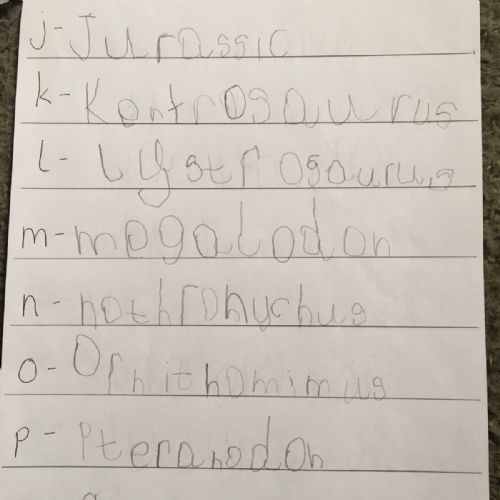 j-Jurassic
k-Kentrosaurus
l-Lystrosaurus
m-megalodon
n-nothronychus
o-Ornithomimus
p-Pteranodon